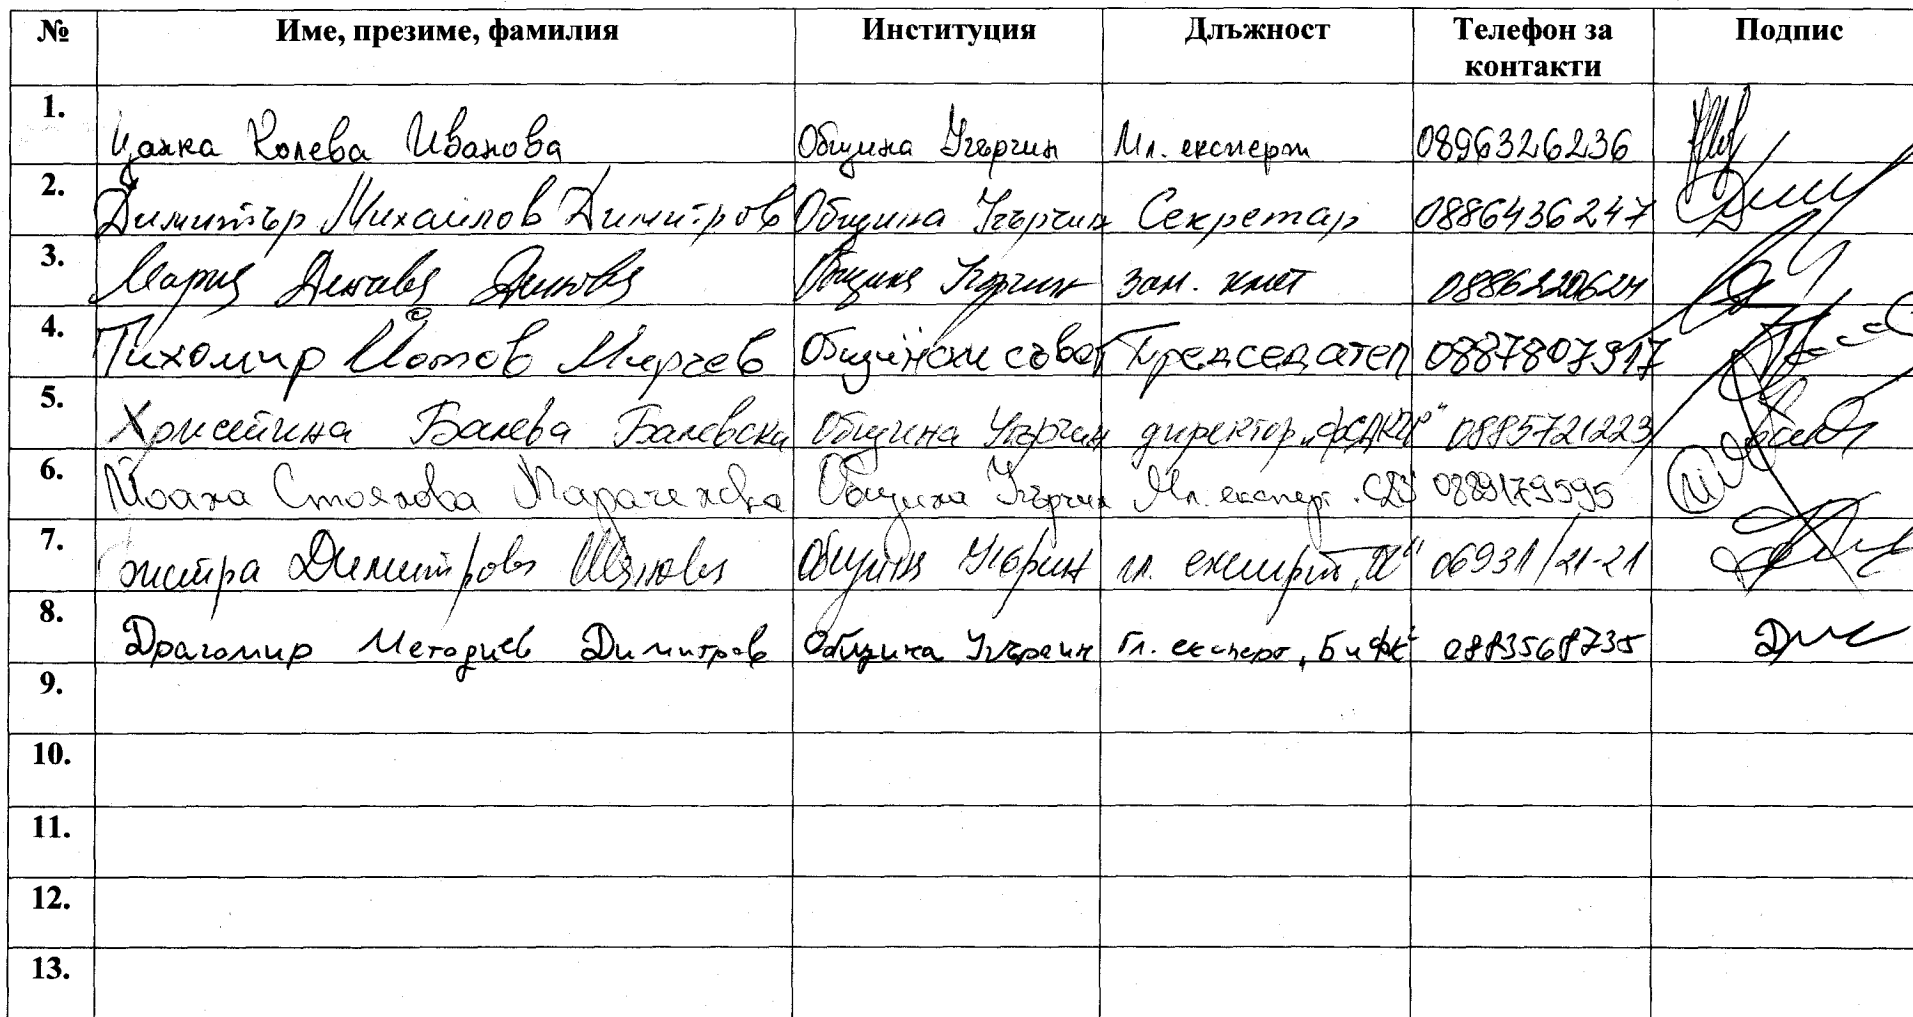 № Име, презиме, фамилия Институция Длъжност Телефон за контакти Подпис
1. Цанка Колева Иванова Община Угърчин Мл. експерт 0896326236
2. Димитър Михайлов Димитров Община Угърчин Секретар 0886436247
3. Мария Община Угърчин зам. кмет
4. Тихомир Йотов Мирчев Общински съвет Председател 0887807917
5. Христина Балева Балевска Община Угърчин директор 0885721223
6. Йоана Стоянова Община Угърчин Мл. експерт 0889179595
7. Димитрова Иванова Община Угърчин гл. експерт 06931/21-21
8. Драгомир Методиев Димитров Община Угърчин Гл. експерт „БиФК“ 0883568735
9.
10.
11.
12.
13.